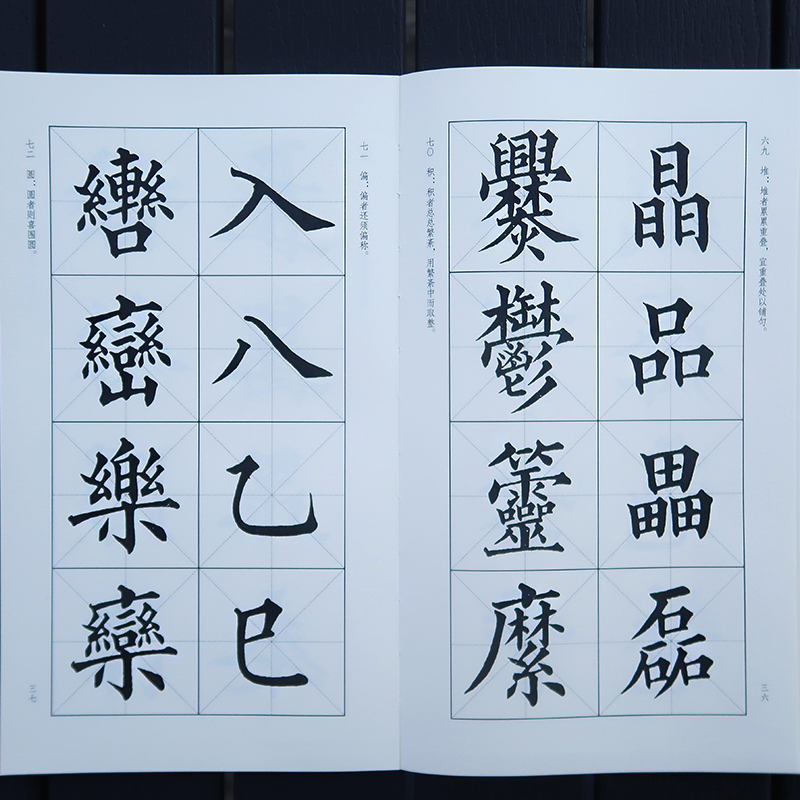 六九 堆:堆者累累重叠,宜重叠处以铺匀。
晶品畾磊
爨鬱靈縻
七〇 积:积者总总繁紊,用繁紊中而取整。
三六
七一 偏:偏者还须偏称。
入八乙巳
轡巒樂欒
七二 圆:圆者则喜围圆。
三七